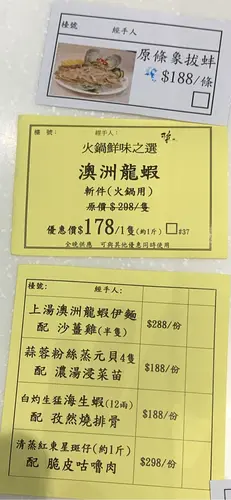 檯號 經手人
原條象拔蚌
$188/條
檯號： 經手人：
火鍋鮮味之選
澳洲龍蝦
斬件(火鍋用)
原價$298/隻
優惠價$178/1隻(約1斤) #37
全晚供應 可與其他優惠同時使用
檯號： 經手人：
上湯澳洲龍蝦伊麵
配 沙薑雞(半隻)
$288/份
蒜蓉粉絲蒸元貝4隻
配 濃湯浸菜苗
$188/份
白灼生猛海生蝦(12両)
配 孜然燒排骨
$188/份
清蒸紅東星斑仔(約1斤)
配 脆皮咕嚕肉
$298/份